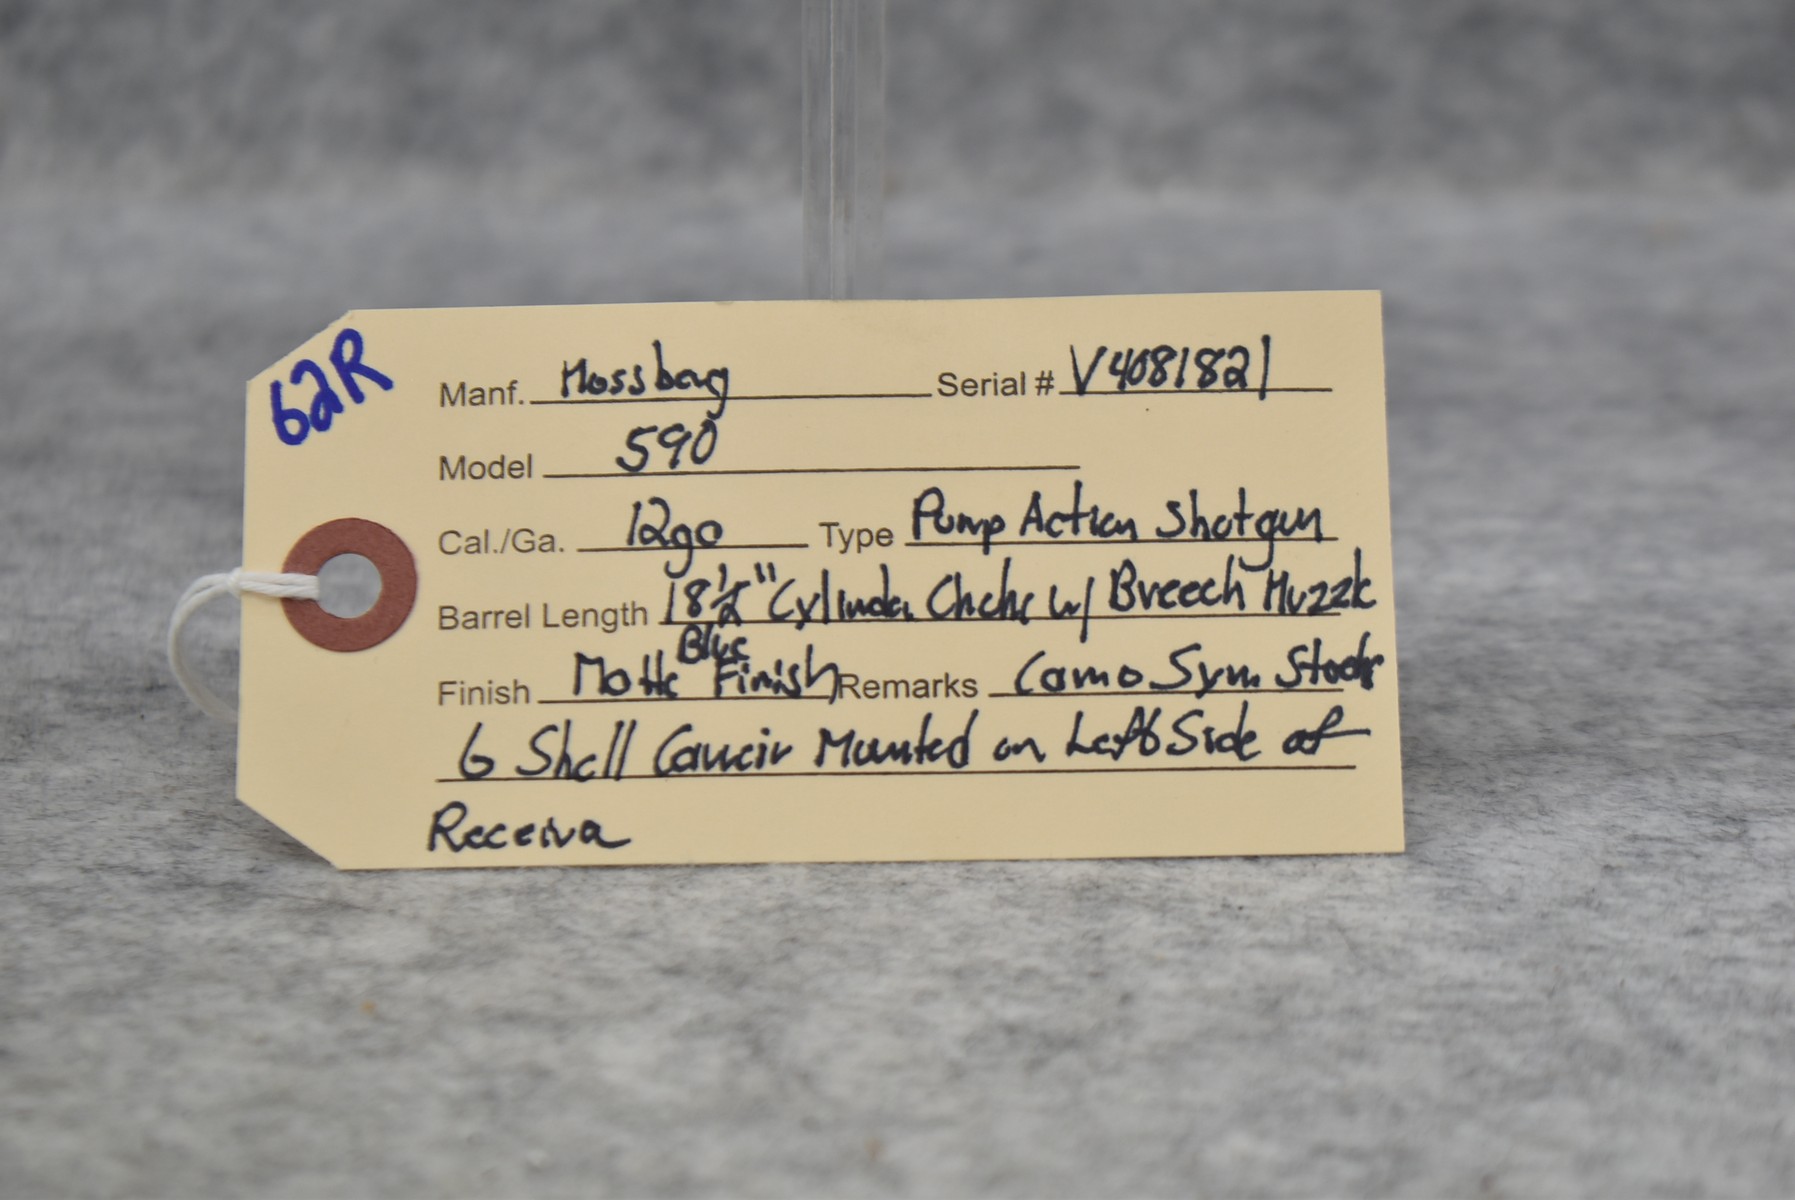 62R
Manf. Mossberg Serial # V4081821
Model 590
Cal./Ga. 12ga Type Pump Action Shotgun
Barrel Length 18½" Cylinder Choke w/ Breech Muzzle
Blue
Finish Matte Finish Remarks Camo Syn. Stock
6 Shell Carrier Mounted on Left Side of
Receiver